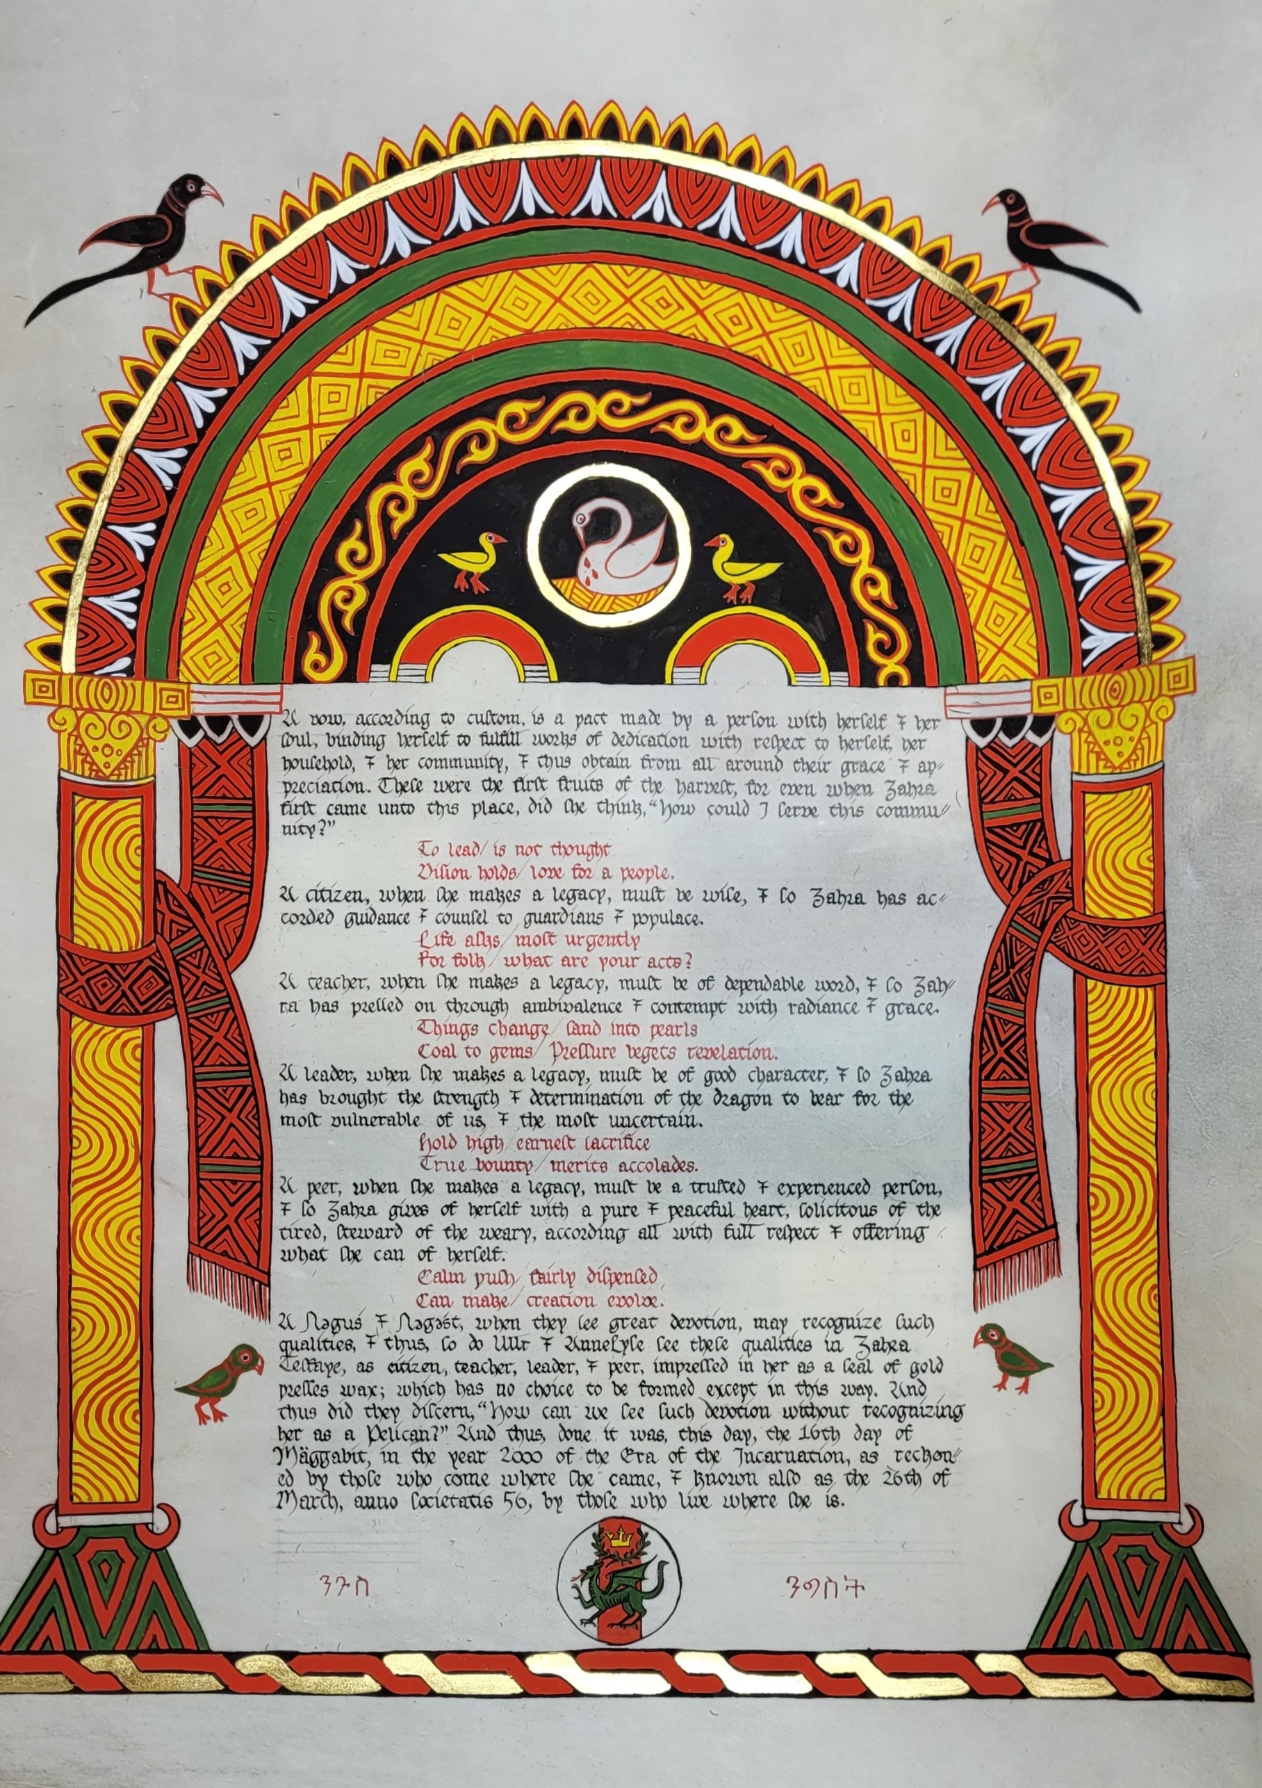 A vow, according to custom, is a pact made by a person with herself ⁊ her
soul, binding herself to fulfill works of dedication with respect to herself, her
household, ⁊ her community, ⁊ thus obtain from all around their grace ⁊ ap⸗
preciation. These were the first fruits of the harvest, for even when Zahra
first came unto this place, did she think, “How could I serve this commu⸗
nity?”
To lead / is not thought
Vision holds / love for a people.
A citizen, when she makes a legacy, must be wise, ⁊ so Zahra has ac⸗
corded guidance ⁊ counsel to guardians ⁊ populace.
Life asks / most urgently
For folk / what are your acts?
A teacher, when she makes a legacy, must be of dependable word, ⁊ so Zah⸗
ra has pressed on through ambivalence ⁊ contempt with radiance ⁊ grace.
Things change / sand into pearls
Coal to gems / Pressure begets revelation.
A leader, when she makes a legacy, must be of good character, ⁊ so Zahra
has brought the strength ⁊ determination of the dragon to bear for the
most vulnerable of us, ⁊ the most uncertain.
Hold high / earnest sacrifice
True bounty / merits accolades.
A peer, when she makes a legacy, must be a trusted ⁊ experienced person,
⁊ so Zahra gives of herself with a pure ⁊ peaceful heart, solicitous of the
tired, steward of the weary, according all with full respect ⁊ offering
what she can of herself.
Calm push / fairly dispensed
Can make / creation evolve.
A Nəguś ⁊ Nəgəśt, when they see great devotion, may recognize such
qualities, ⁊ thus, so do Ullr ⁊ AnneLyse see these qualities in Zahra
Tesfaye, as citizen, teacher, leader, ⁊ peer, impressed in her as a seal of gold
presses wax; which has no choice to be formed except in this way. And
thus did they discern, “How can we see such devotion without recognizing
her as a Pelican?” And thus, done it was, this day, the 16th day of
Mäggabit, in the year 2000 of the Era of the Incarnation, as reckon⸗
ed by those who come where she came, ⁊ known also as the 26th of
March, anno societatis 56, by those who live where she is.
ንጉስ
ንግስት